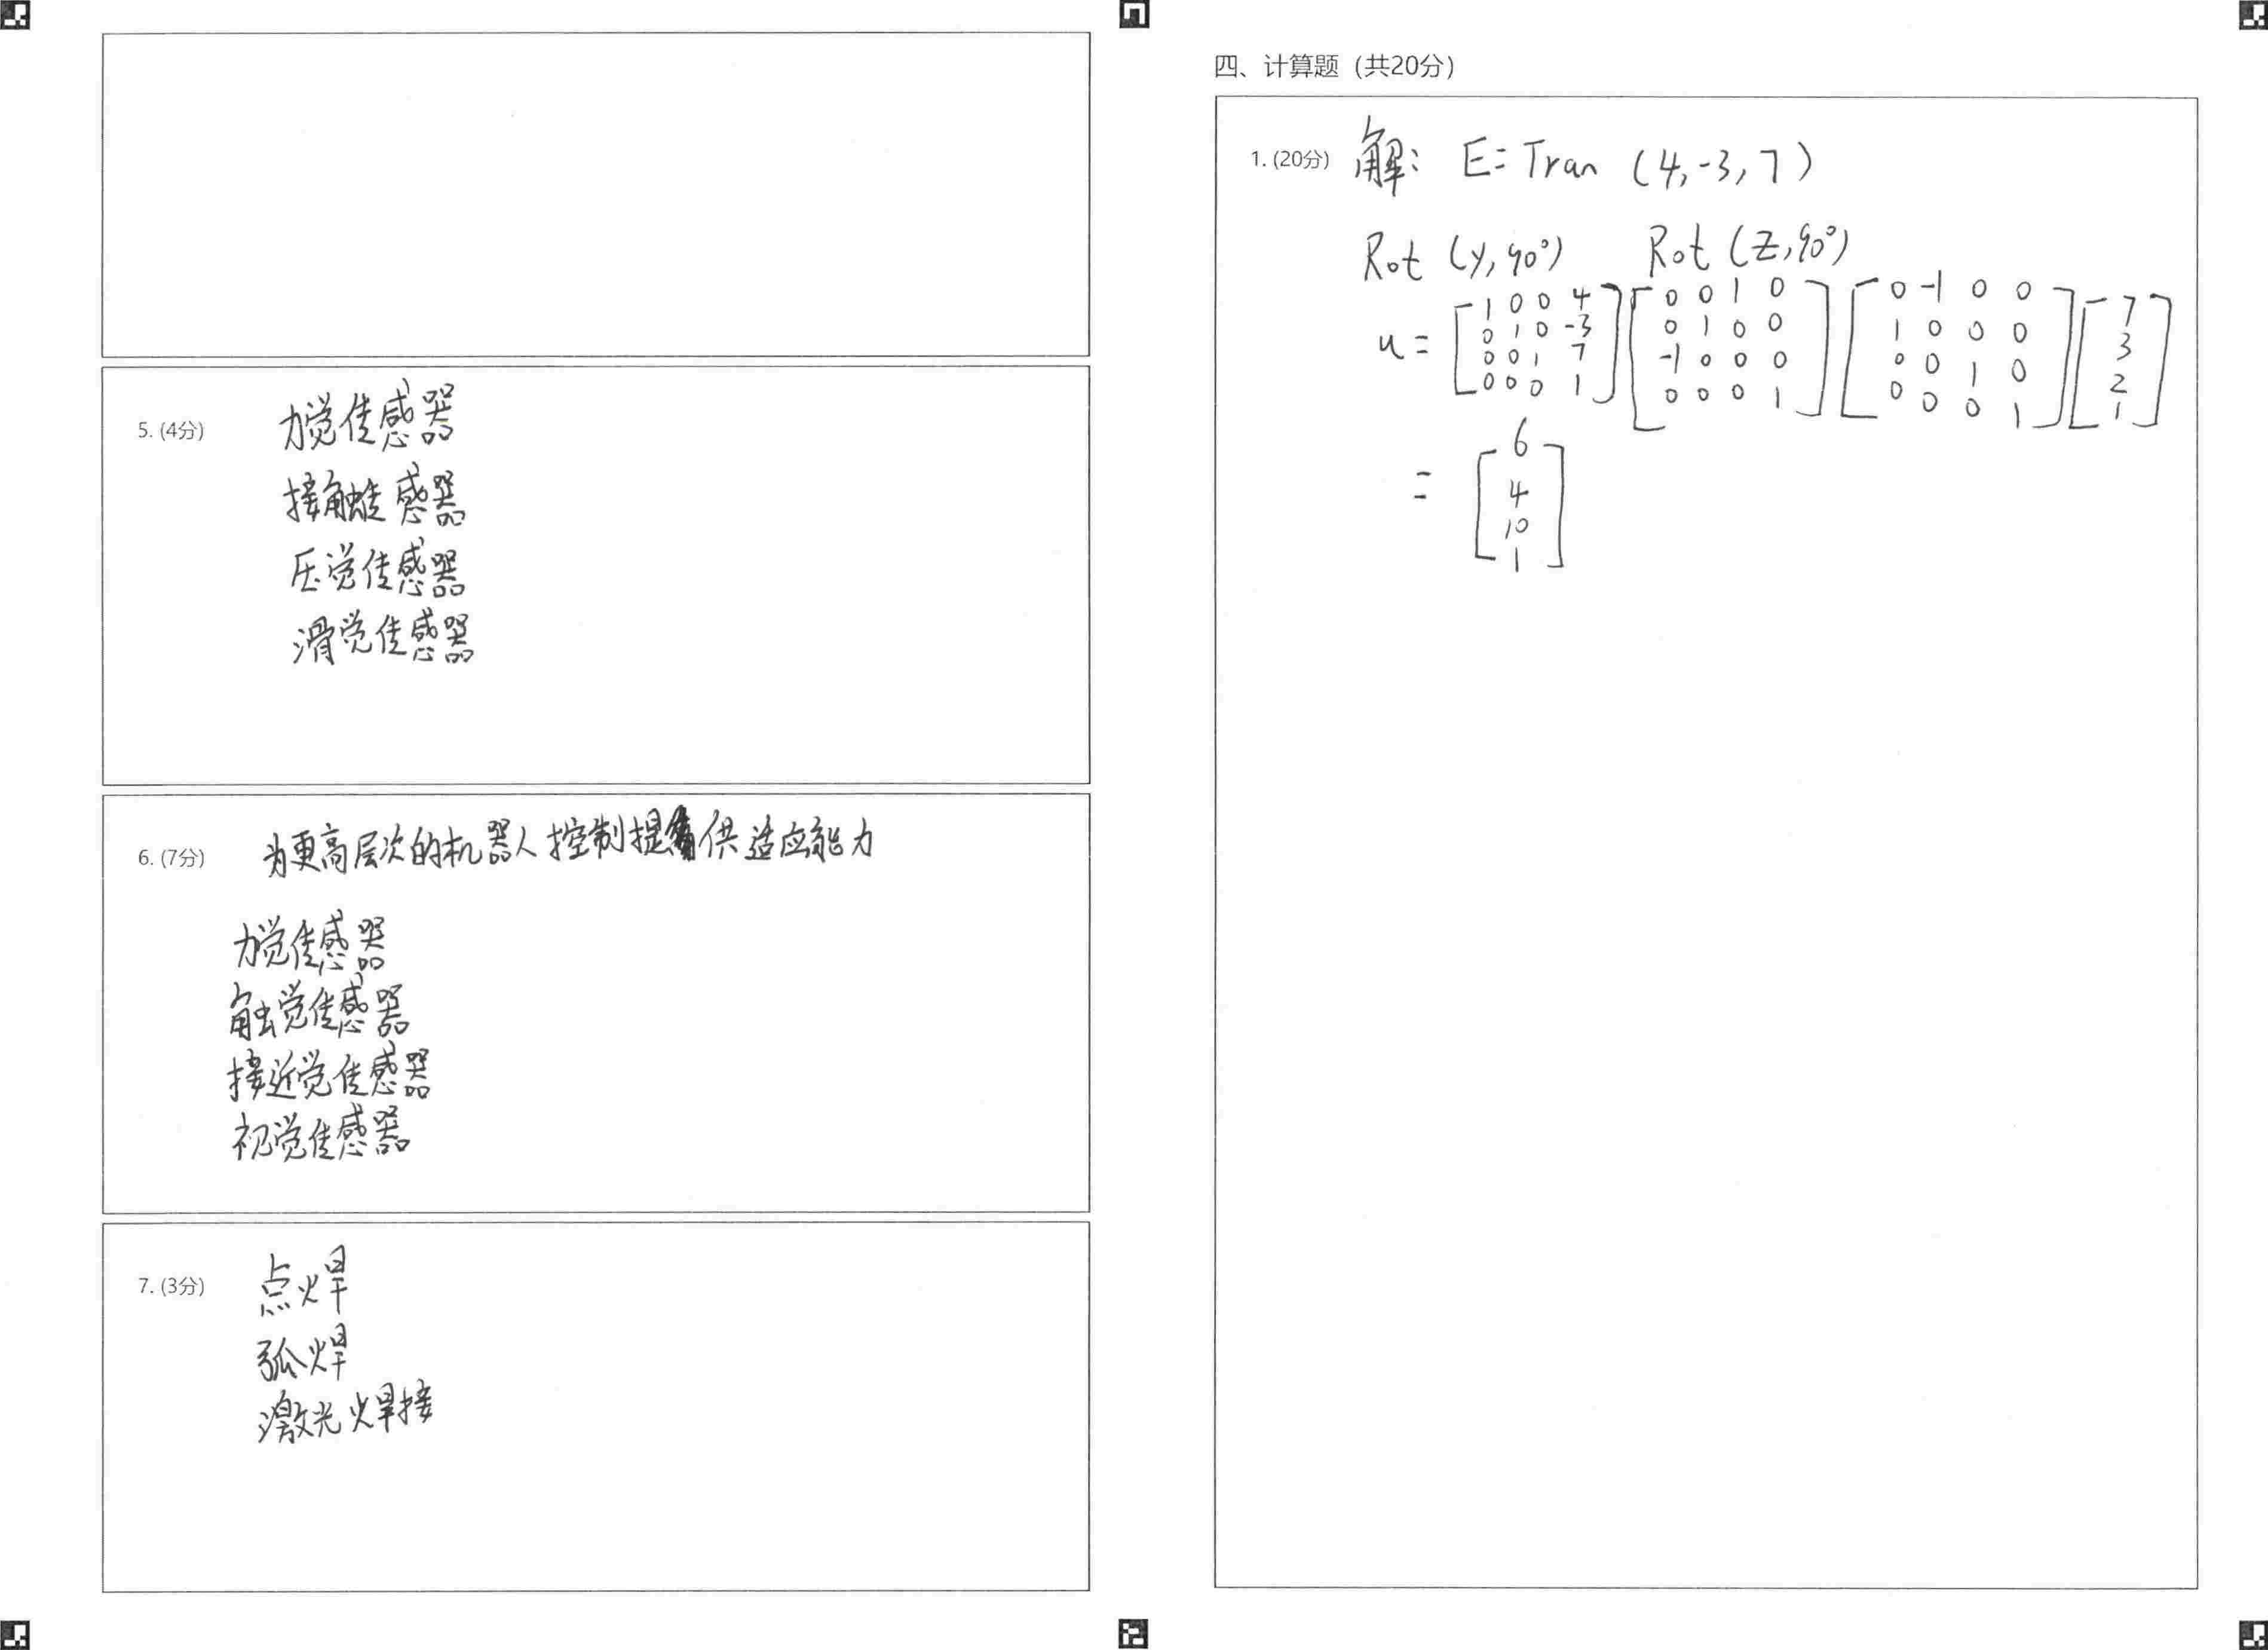 5. (4分) 力觉传感器
接触传感器
压觉传感器
滑觉传感器
6. (7分) 为更高层次的机器人控制提供适应能力
力觉传感器
触觉传感器
接近觉传感器
视觉传感器
7. (3分) 点焊
弧焊
激光焊接
四、计算题（共20分）
1. (20分) 解: E=Tran (4,-3,7)
Rot (y,90°) Rot (Z,90°)
u= [1 0 0 4] [0 0 1 0] [0 -1 0 0] [7]
[0 1 0 -3] [0 1 0 0] [1 0 0 0] [3]
[0 0 1 7] [-1 0 0 0] [0 0 1 0] [2]
[0 0 0 1] [0 0 0 1] [0 0 0 1] [1]
= [6]
[4]
[10]
[1]